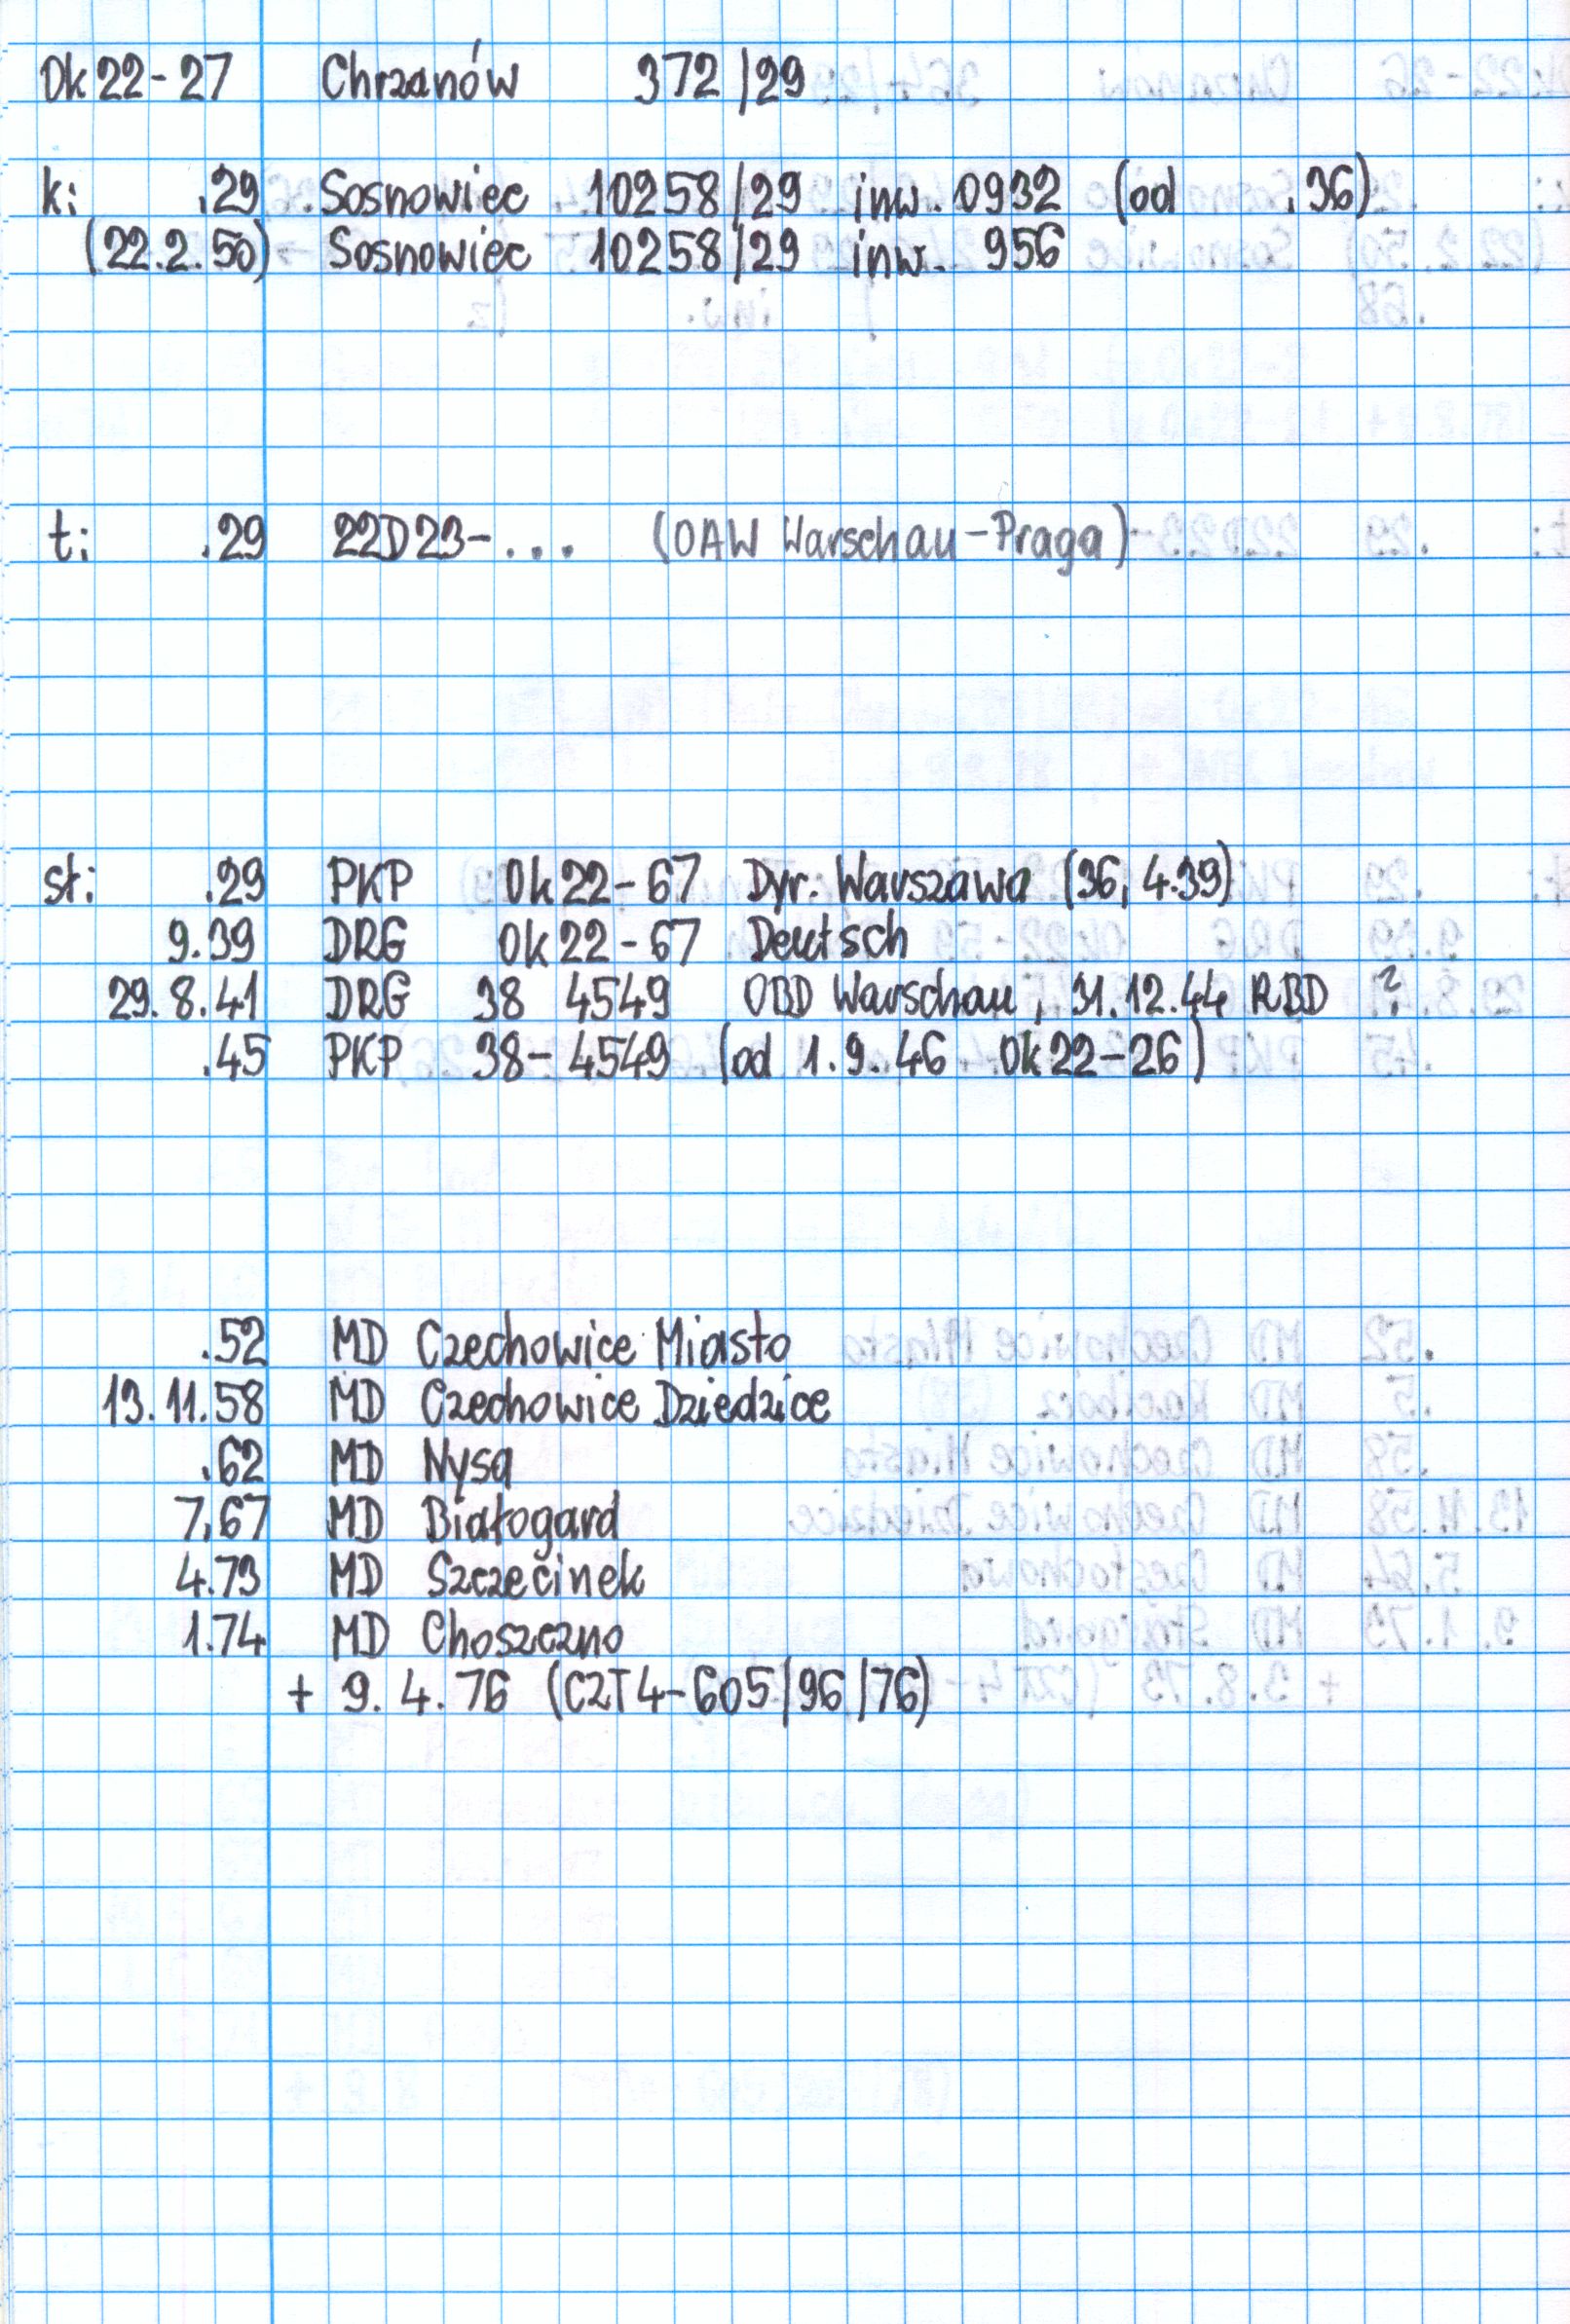 Ok22-27 Chrzanów 372/29
k: .29 Sosnowiec 10258/29 inw. 0932 (od .36)
(22.2.50) Sosnowiec 10258/29 inw. 956
t: .29 22D23-... (OAW Warschau-Praga)
st: .29 PKP Ok22-67 Dyr. Warszawa (36, 4.39)
9.39 DRG Ok22-67 Deutsch
29.8.41 DRG 38 4549 OBD Warschau, 31.12.44 RBD ?
.45 PKP 38-4549 (od 1.9.46 Ok22-26)
.52 MD Czechowice Miasto
13.11.58 MD Czechowice Dziedzice
.62 MD Nysa
7.67 MD Białogard
4.73 MD Szczecinek
1.74 MD Choszczno
+ 9.4.76 (CZT4-605/96/76)